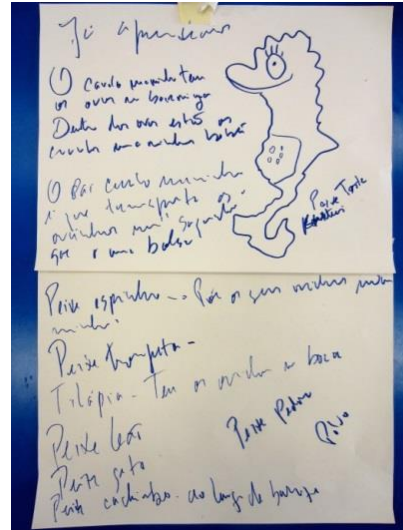 Já aprendemos
O Cavalo marinho tem
os ovos na barriga
Dentro dos ovos estão os
cavalos marinhos bebés
O Pai cavalo marinho
é que transporta os
ovinhos num saquinho
que é uma bolsa
Peixe
Peixe espinho - Põe os seus ovinhos num
ninho.
Peixe trompeta -
Tilápia - Tem os ovinhos na boca
Peixe leão
Peixe Pedra
Polvo
Peixe gato
Peixe cachimbo - ao longo da barriga